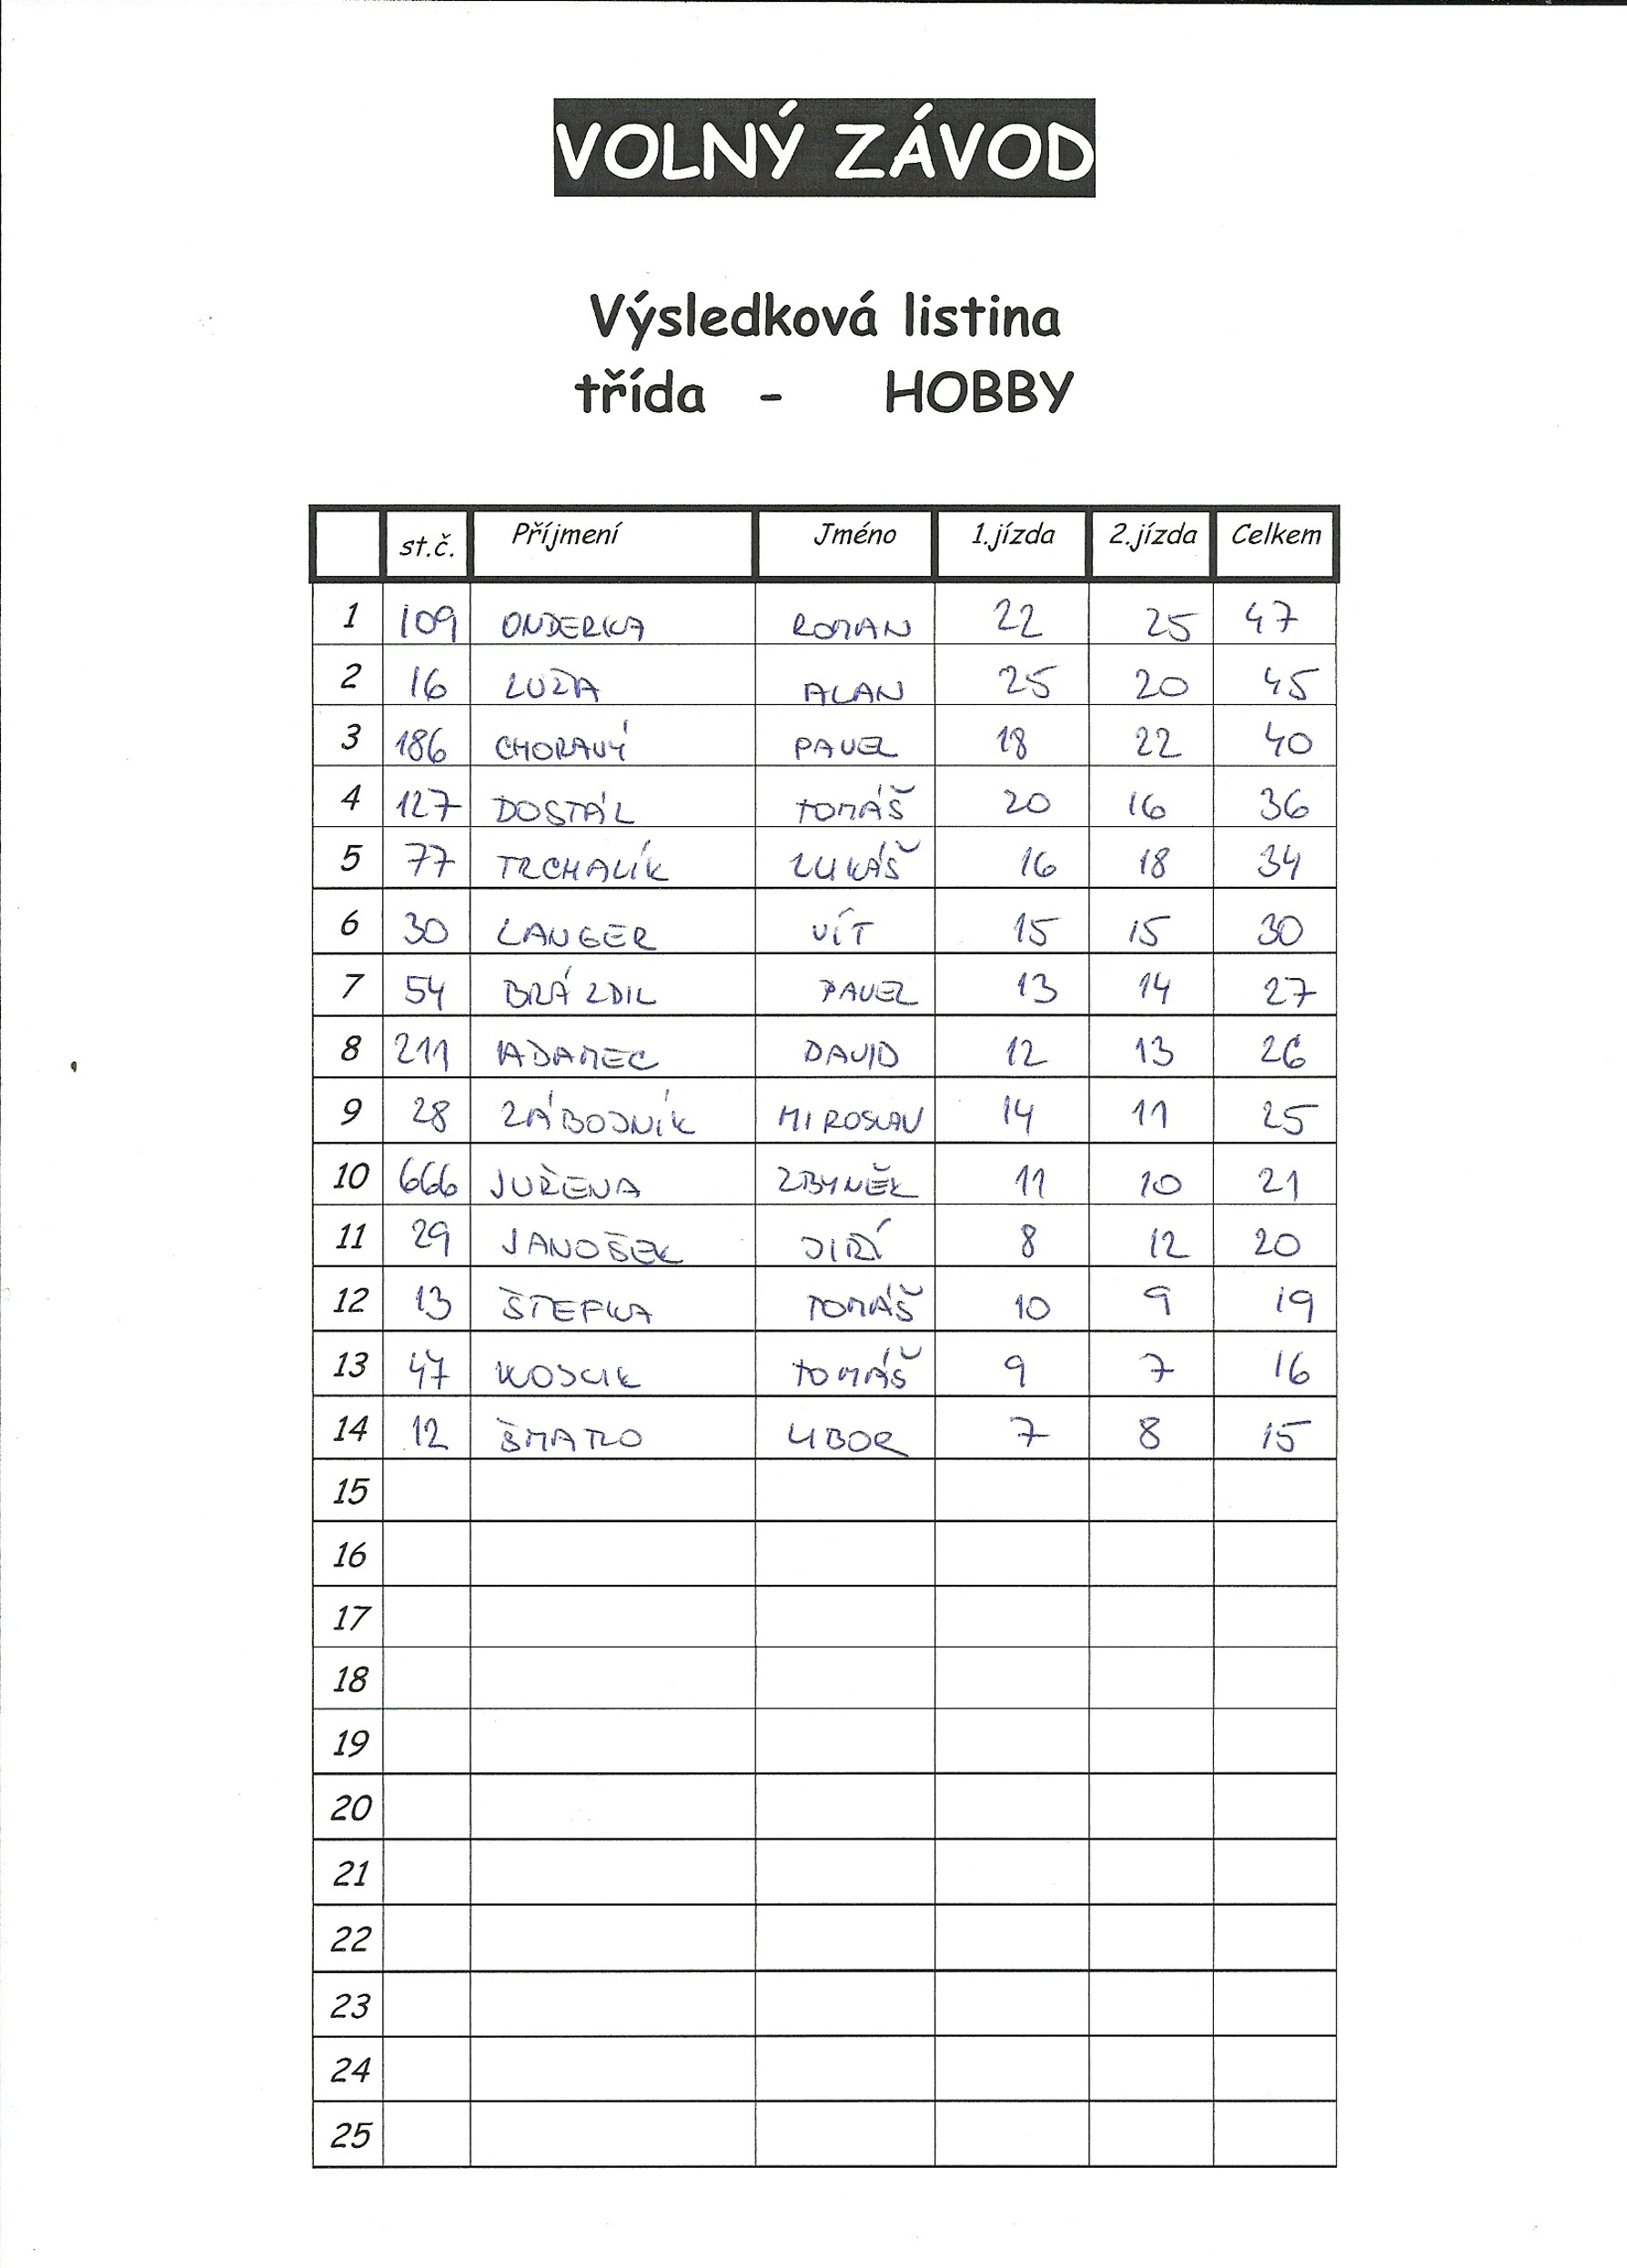 VOLNÝ ZÁVOD
Výsledková listina
třída - HOBBY
st.č. Příjmení Jméno 1.jízda 2.jízda Celkem
1 109 ONDERKA ROMAN 22 25 47
2 16 LUŽA ALAN 25 20 45
3 186 CHORAVÝ PAVEL 18 22 40
4 127 DOSTÁL TOMÁŠ 20 16 36
5 77 TRCHALÍK LUKÁŠ 16 18 34
6 30 LANGER VÍT 15 15 30
7 54 BRÁZDIL PAVEL 13 14 27
8 211 ADAMEC DAVID 12 13 26
9 28 ZÁBOJNÍK MIROSLAV 14 11 25
10 666 JUŘENA ZBYNĚK 11 10 21
11 29 JANOŠEK JIŘÍ 8 12 20
12 13 ŠTEFKA TOMÁŠ 10 9 19
13 47 TOMÁŠ 9 7 16
14 12 ŠMATLO LIBOR 7 8 15
15
16
17
18
19
20
21
22
23
24
25